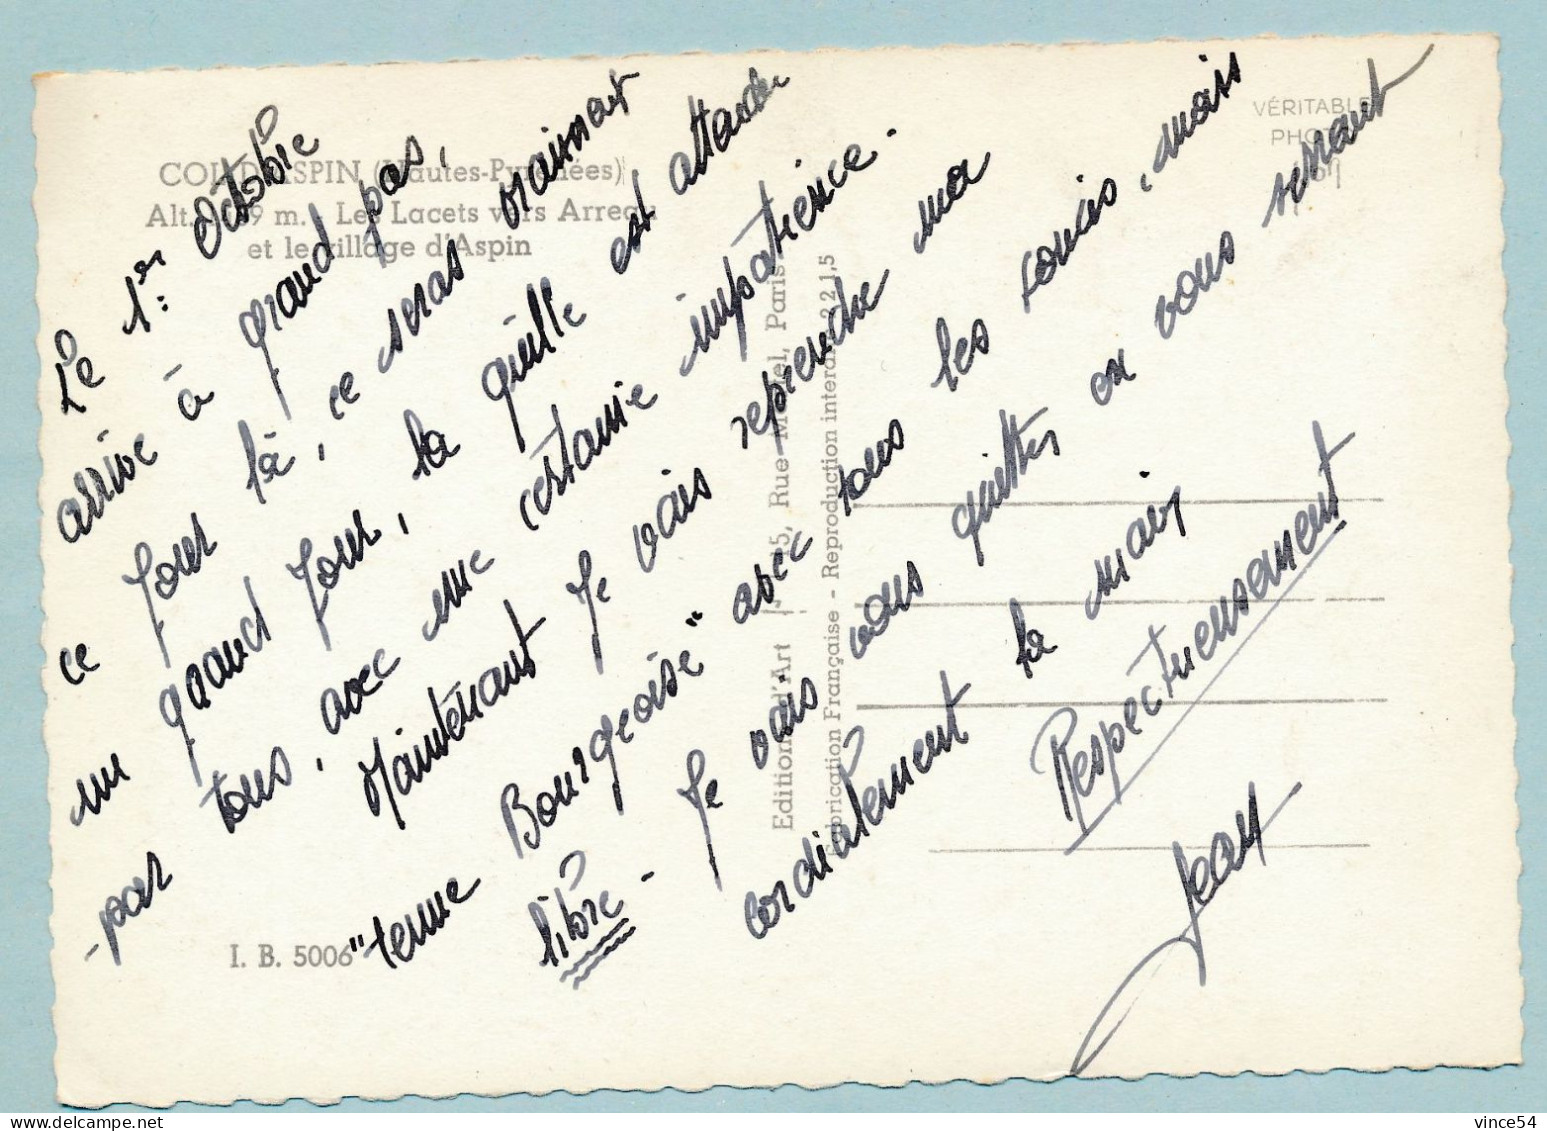 COL D'ASPIN (Hautes-Pyrénées)
Les Lacets vers Arreau
et le village d'Aspin
VÉRITABLE
PHOTO
Le 1er Octobre
arrive à grand pas,
ce jour là, ce seras vraiment
un grand jour, la quille est attendu
par tous, avec une certaine impatience.
Maintenant je vais reprendre ma
"tenue Bourgeoise" avec tous les soucis, mais
libre - Je vais vous quitter en vous serrant
cordialement la main
Respectueusement
Jean
I. B. 5006
Editions d'Art
Paris
Fabrication Française - Reproduction interdite
vince54